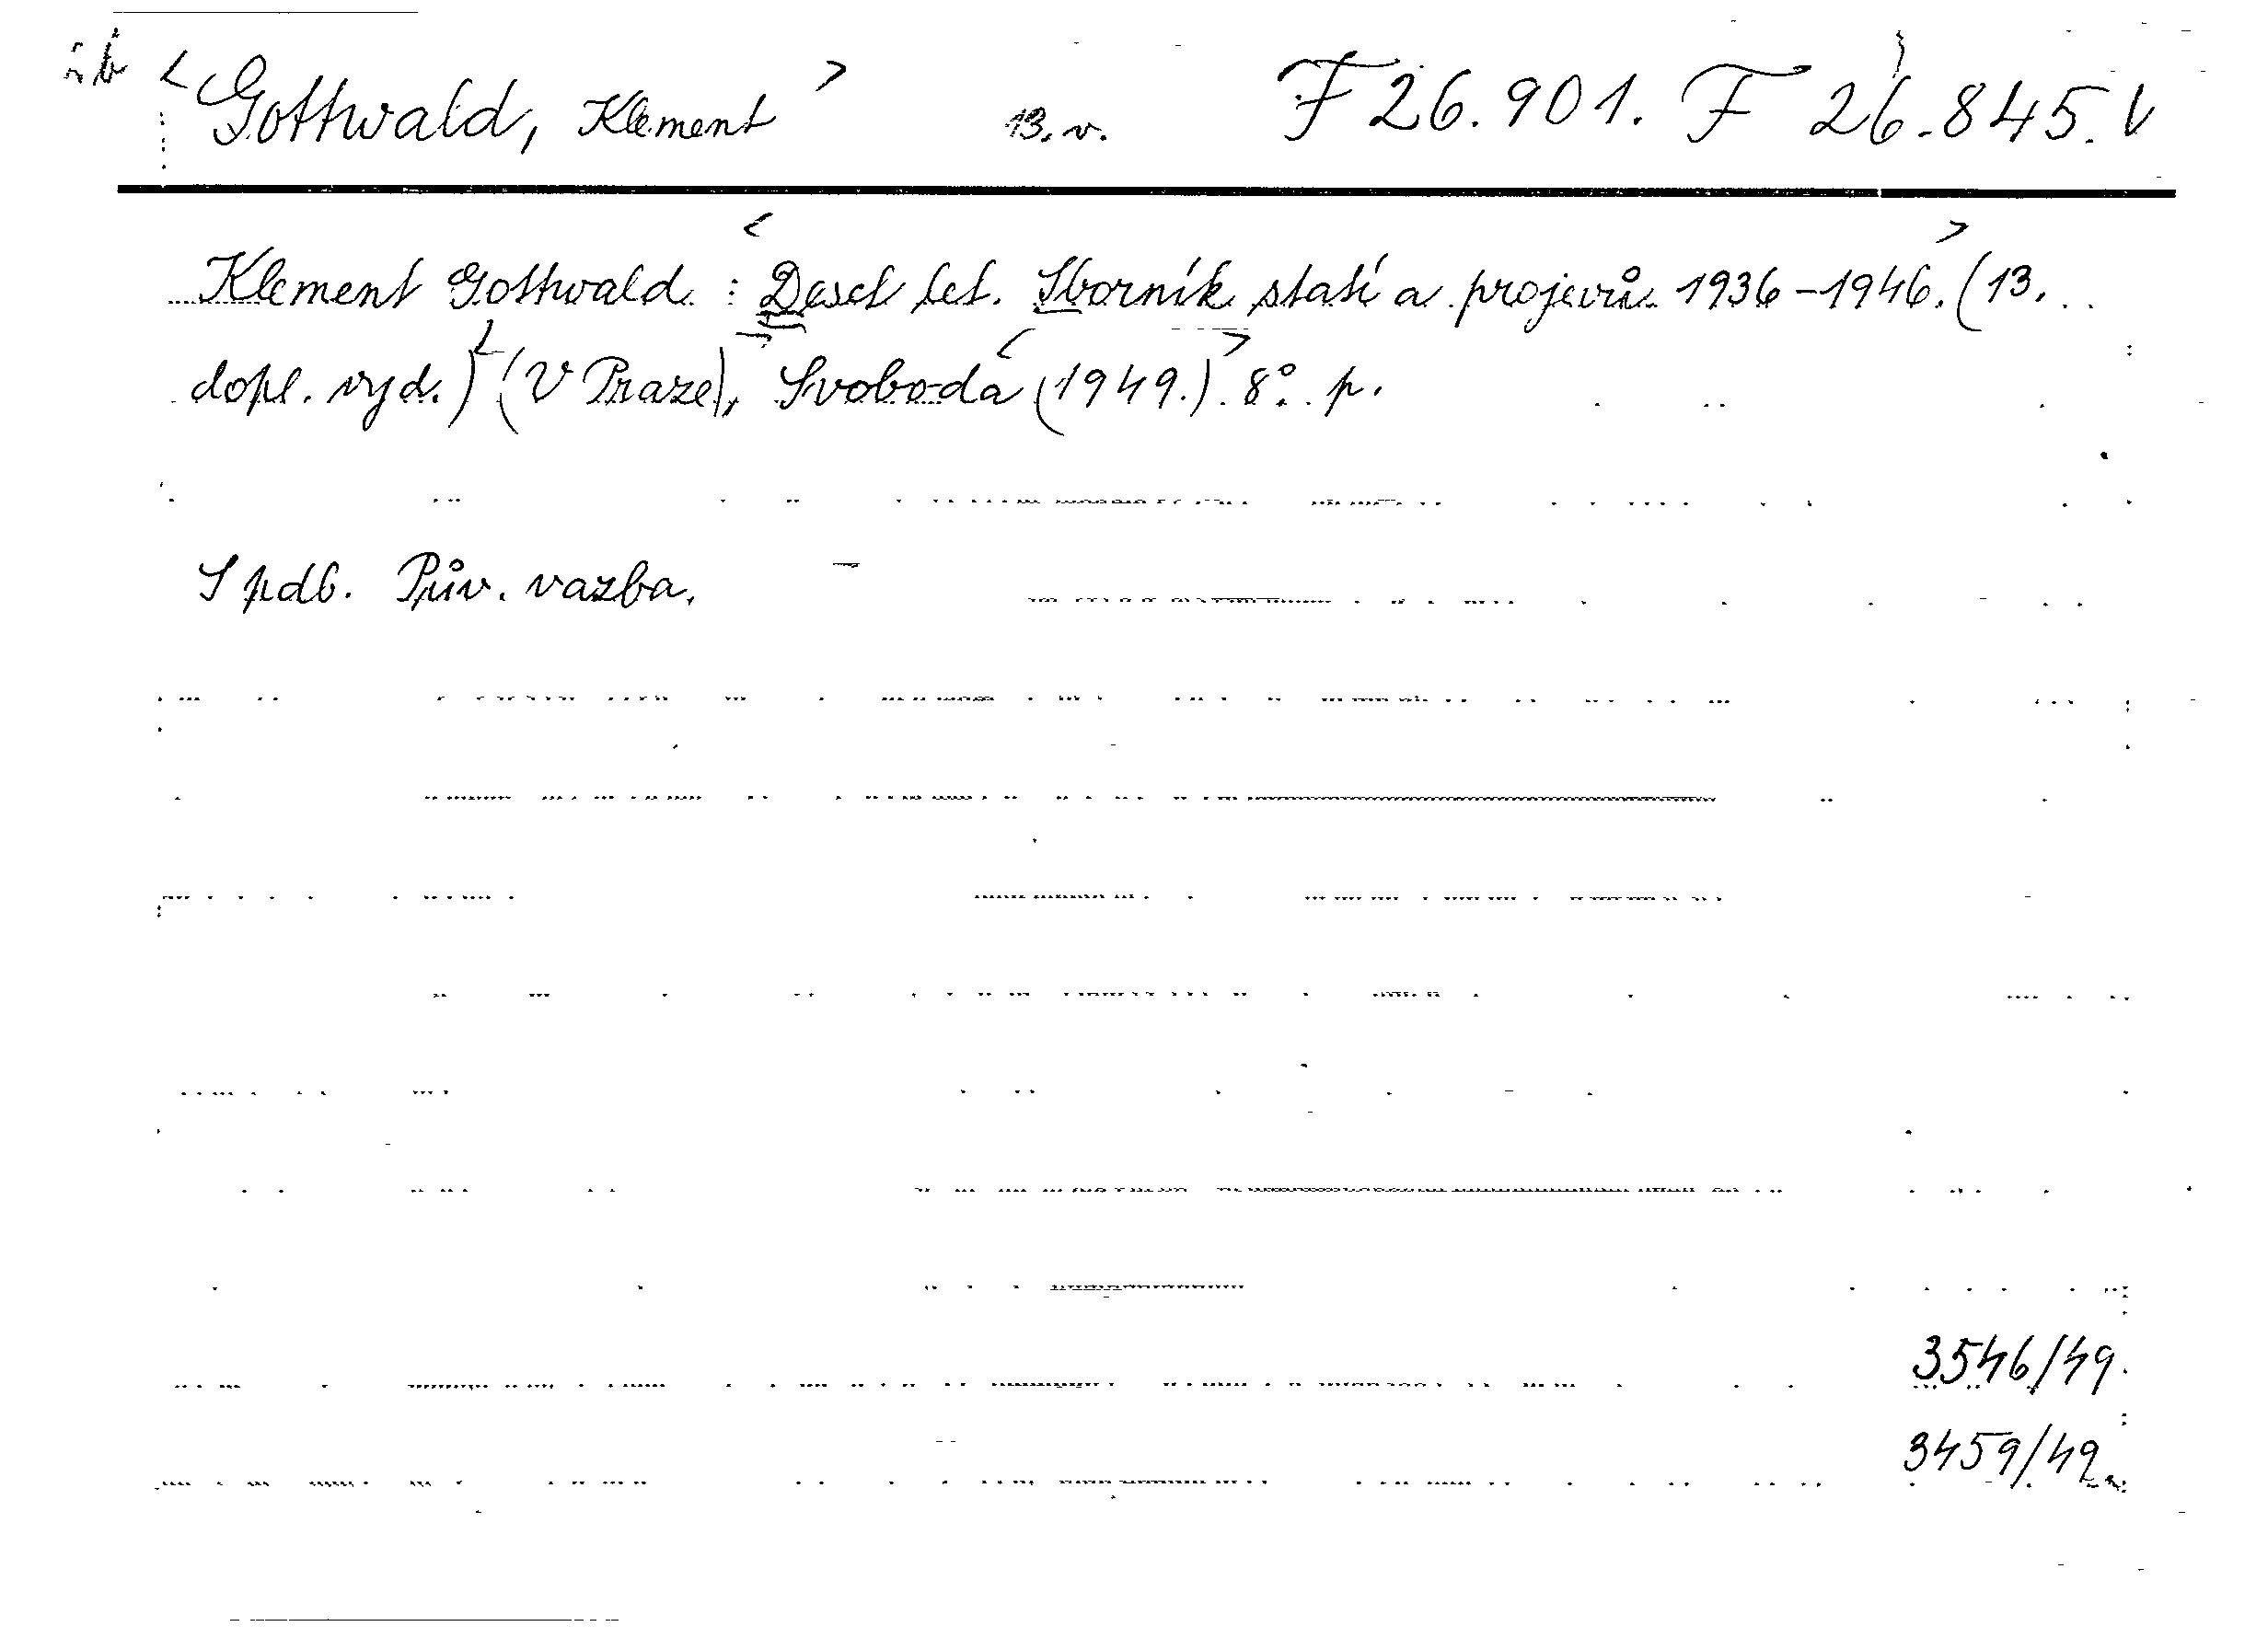 <Gottwald, Klement> 13. v. F 26.901. F 26.845.
Klement Gottwald : <Deset let. Sborník statí a projevů 1936-1946.> (13.
dopl. vyd.) <(V Praze)>, Svoboda <(1949.)> 8°. p.
S pdb. Pův. vazba.
3546/49.
3459/49.